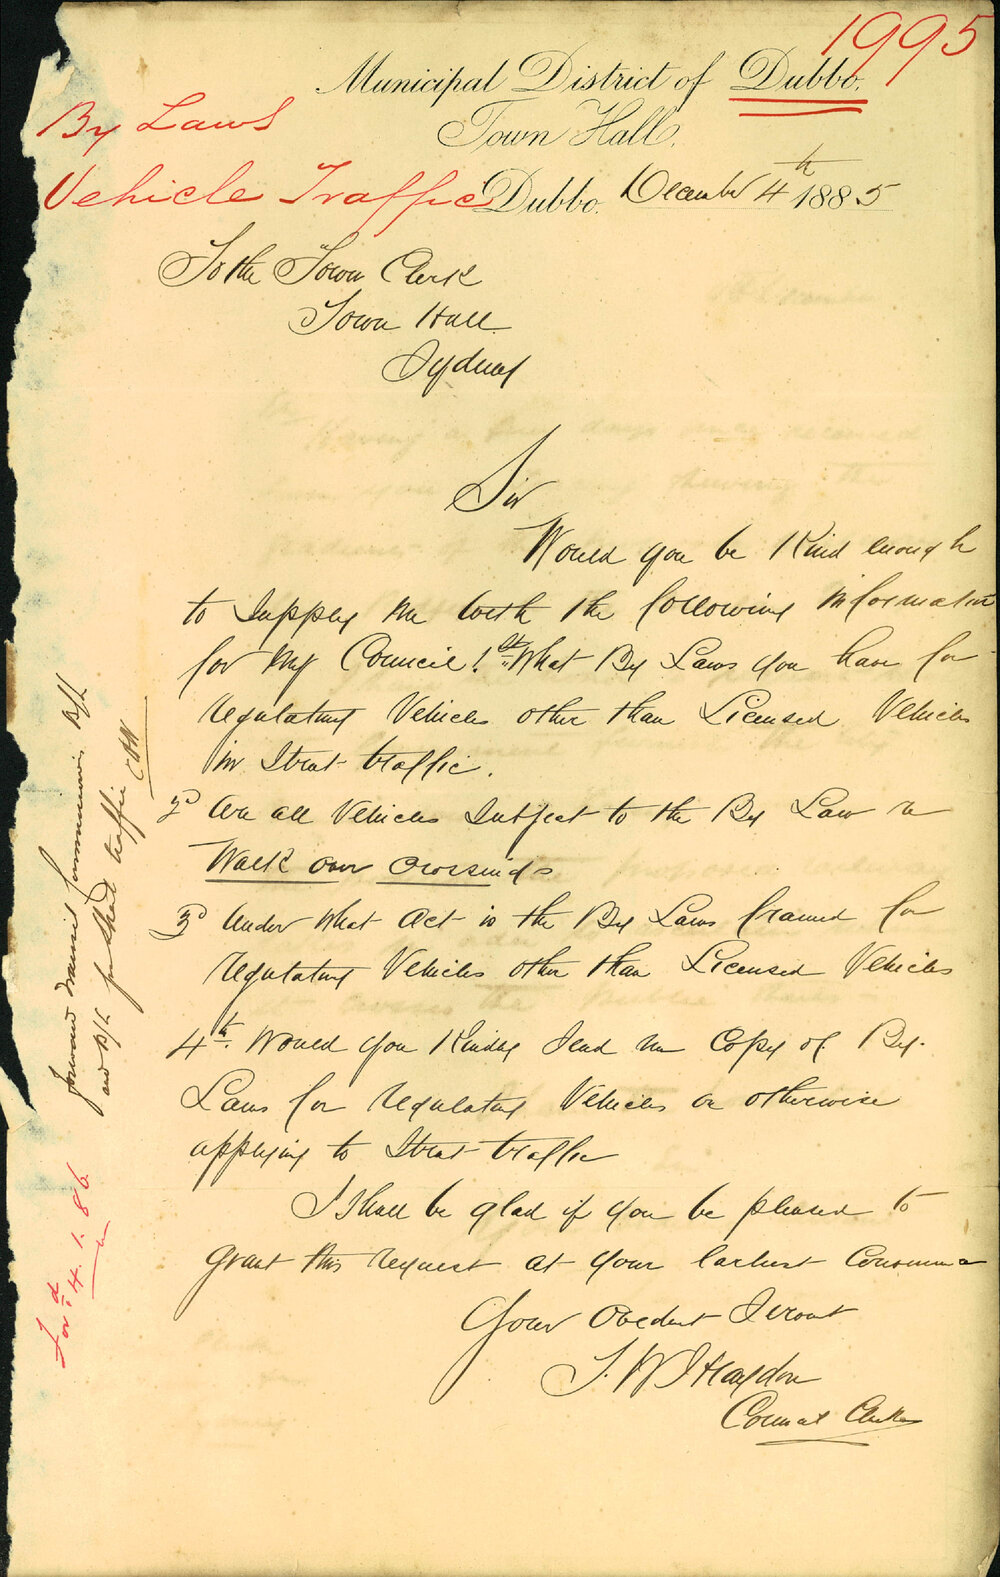 1995
Municipal District of Dubbo.
Town Hall.
By Laws
Vehicle Traffic
Dubbo. December 4th 1885
To the Town Clerk
Town Hall
Sydney
Sir
Would you be kind enough
to supply me with the following information
for my Council 1st What By Laws you have for
regulating Vehicles other than Licensed Vehicles
in Street traffic.
2d Are all Vehicles subject to the By Law re
Walk over crossings
3d Under what act is the By Laws framed for
regulating Vehicles other than Licensed Vehicles
4th. Would you kindly send me Copy of By-
Laws for regulating Vehicles or otherwise
applying to Street traffic
I shall be glad if you be pleased to
grant this request at your earliest
Your Obedient Servant
Council Clerk
forward By L
and By L for Street traffic
Ford 14.1.86